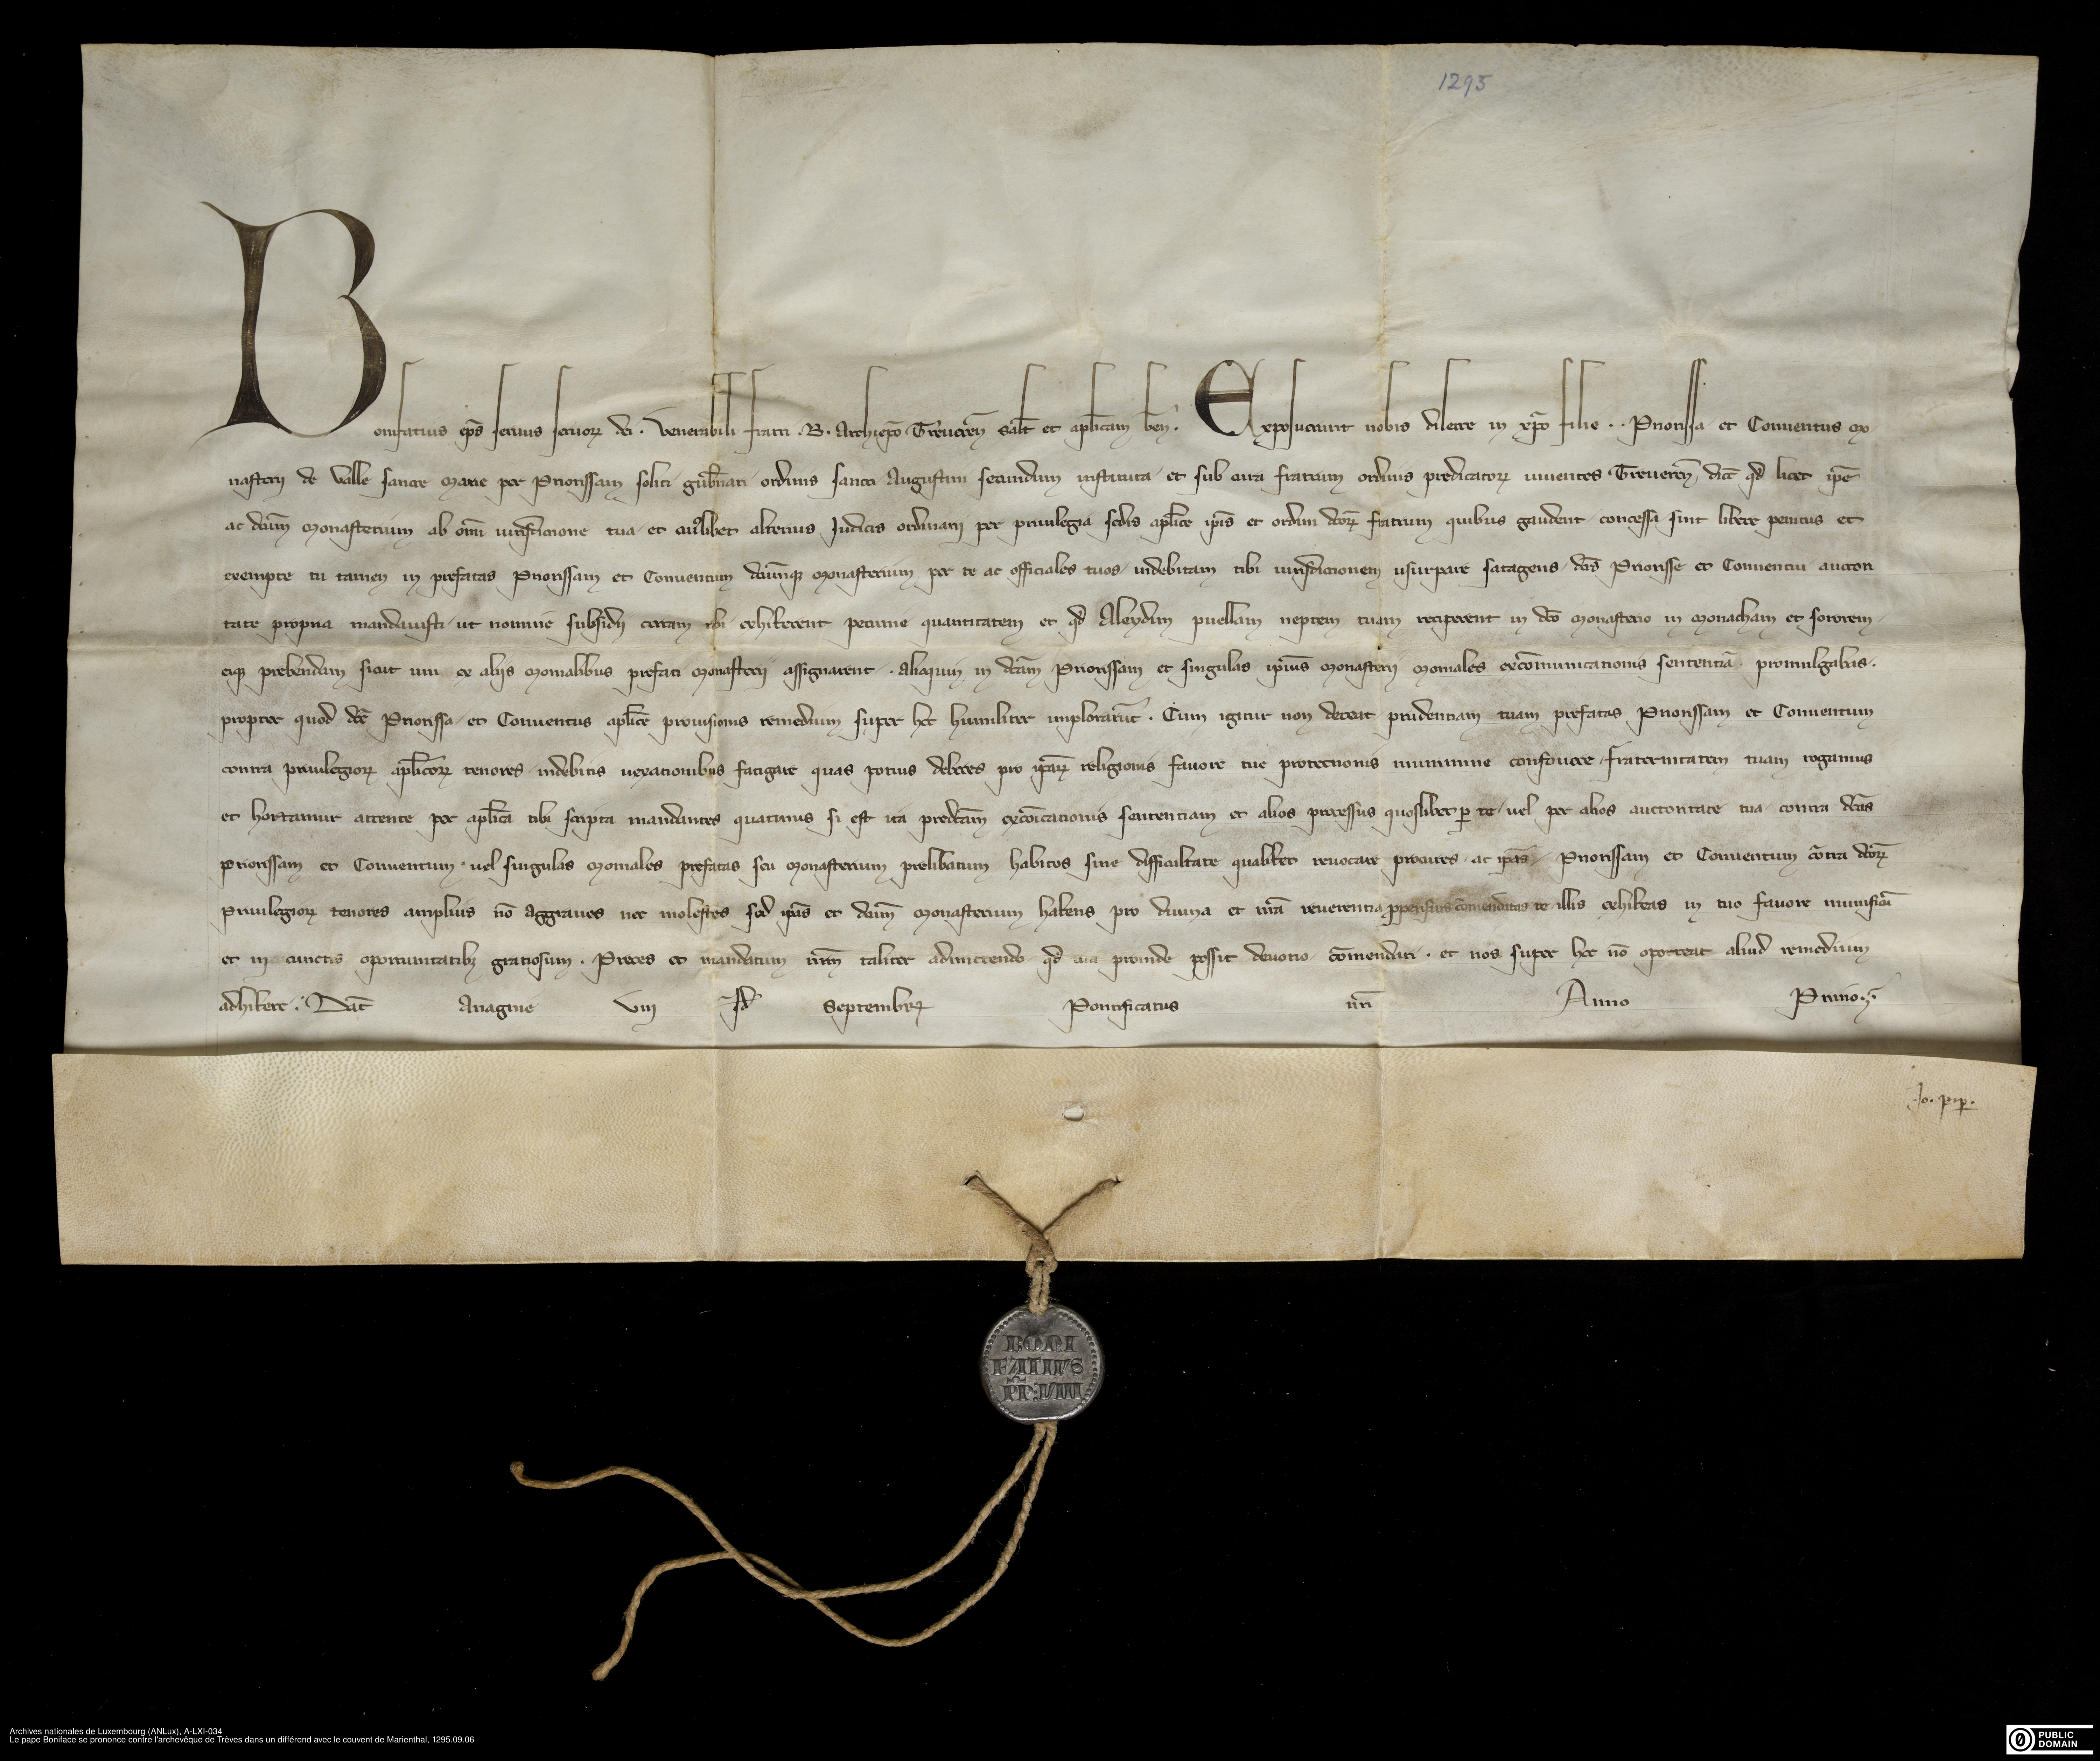 1295
Bonifatius ep̄s seruus seruoꝝ dei. Venerabili fratri .B. Archiep̄o Treueren̄ sal̄t et ap̄licam ben̄. Exposuerunt nobis dilecte in xp̄o filie .. Priorissa et Conuentus Mo
nasterii de Valle sancte Marie per Priorissam soliti gub̄nari ordinis sancti Augustini secundum instituta et sub cura fratrum ordinis predicatoꝝ uiuentes Treueren̄ dioc̄ qd̄ licet ip̄e
ac dc̄um Monasterium ab om̄i iurisdictione tua et cuiuslibet alterius Iudicis ordinarii per priuilegia sedis ap̄lice ip̄is et ordini dc̄oꝝ fratrum quibus gaudent concessa sint libere penitus et
exempte tu tamen in prefatas Priorissam et Conuentum dc̄umqꝫ Monasterium per te ac officiales tuos indebitam tibi iurisdictionem usurpare satagens dc̄is Priorisse et Conuentui auctori
tate propria mandauisti ut nomine subsidii certam tibi exhiberent pecunie quantitatem et qd̄ Aleydim puellam neptem tuam reciperent in dc̄o Monasterio in Monacham et sororem
eiqꝫ prebendam sicut uni ex aliis Monialibus prefati Monasterii assignarent. alioquin in dc̄am Priorissam et singulas ip̄ius Monasterii Moniales excōmunicationis sententiā promulgabas.
propter quod dc̄e Priorissa et Conuentus ap̄lice prouisionis remedium super hoc humiliter implorarūt. Cum igitur non deceat prudentiam tuam prefatas Priorissam et Conuentum
contra priuilegioꝝ ap̄licoꝝ tenores indebitis uexationibus fatigare quas potius deberes pro ip̄aꝝ religionis fauore tue protectionis munimine confouere fraternitatem tuam rogamus
et hortamur attente per ap̄lica tibi scripta mandantes quatinus si est ita predc̄am excōicationis sententiam et alios processus quoslibet ꝑ te uel per alios auctoritate tua contra dc̄as
Priorissam et Conuentum uel singulas Moniales prefatas seu Monasterium prelibatum habitos sine difficultate qualibet reuocare procures ac ip̄as Priorissam et Conuentum cōtra dc̄oꝝ
Priuilegioꝝ tenores amplius nō aggraues nec molestes sed ip̄as et dc̄um Monasterium habens pro diuina et nr̄a reuerentia ꝓpensius cōmenditas te illis exhibeas in tuo fauore munificū
et in cunctis oportunitatibꝫ gratiosum. Preces et mandatum nr̄m taliter admittendo qd̄ tua proinde possit deuotio cōmendari. et nos super hoc nō oporteat aliud remedium
adhibere. Dat̄ Anagnie VIII Id̄ Septembrꝫ Pontificatus nr̄i Anno Primo.
Jo. pip.
BONI
FATIVS
PP̄:VIII
Archives nationales de Luxembourg (ANLux), A-LXI-034
Le pape Boniface se prononce contre l'archevêque de Trèves dans un différend avec le couvent de Marienthal, 1295.09.06
PUBLIC
DOMAIN